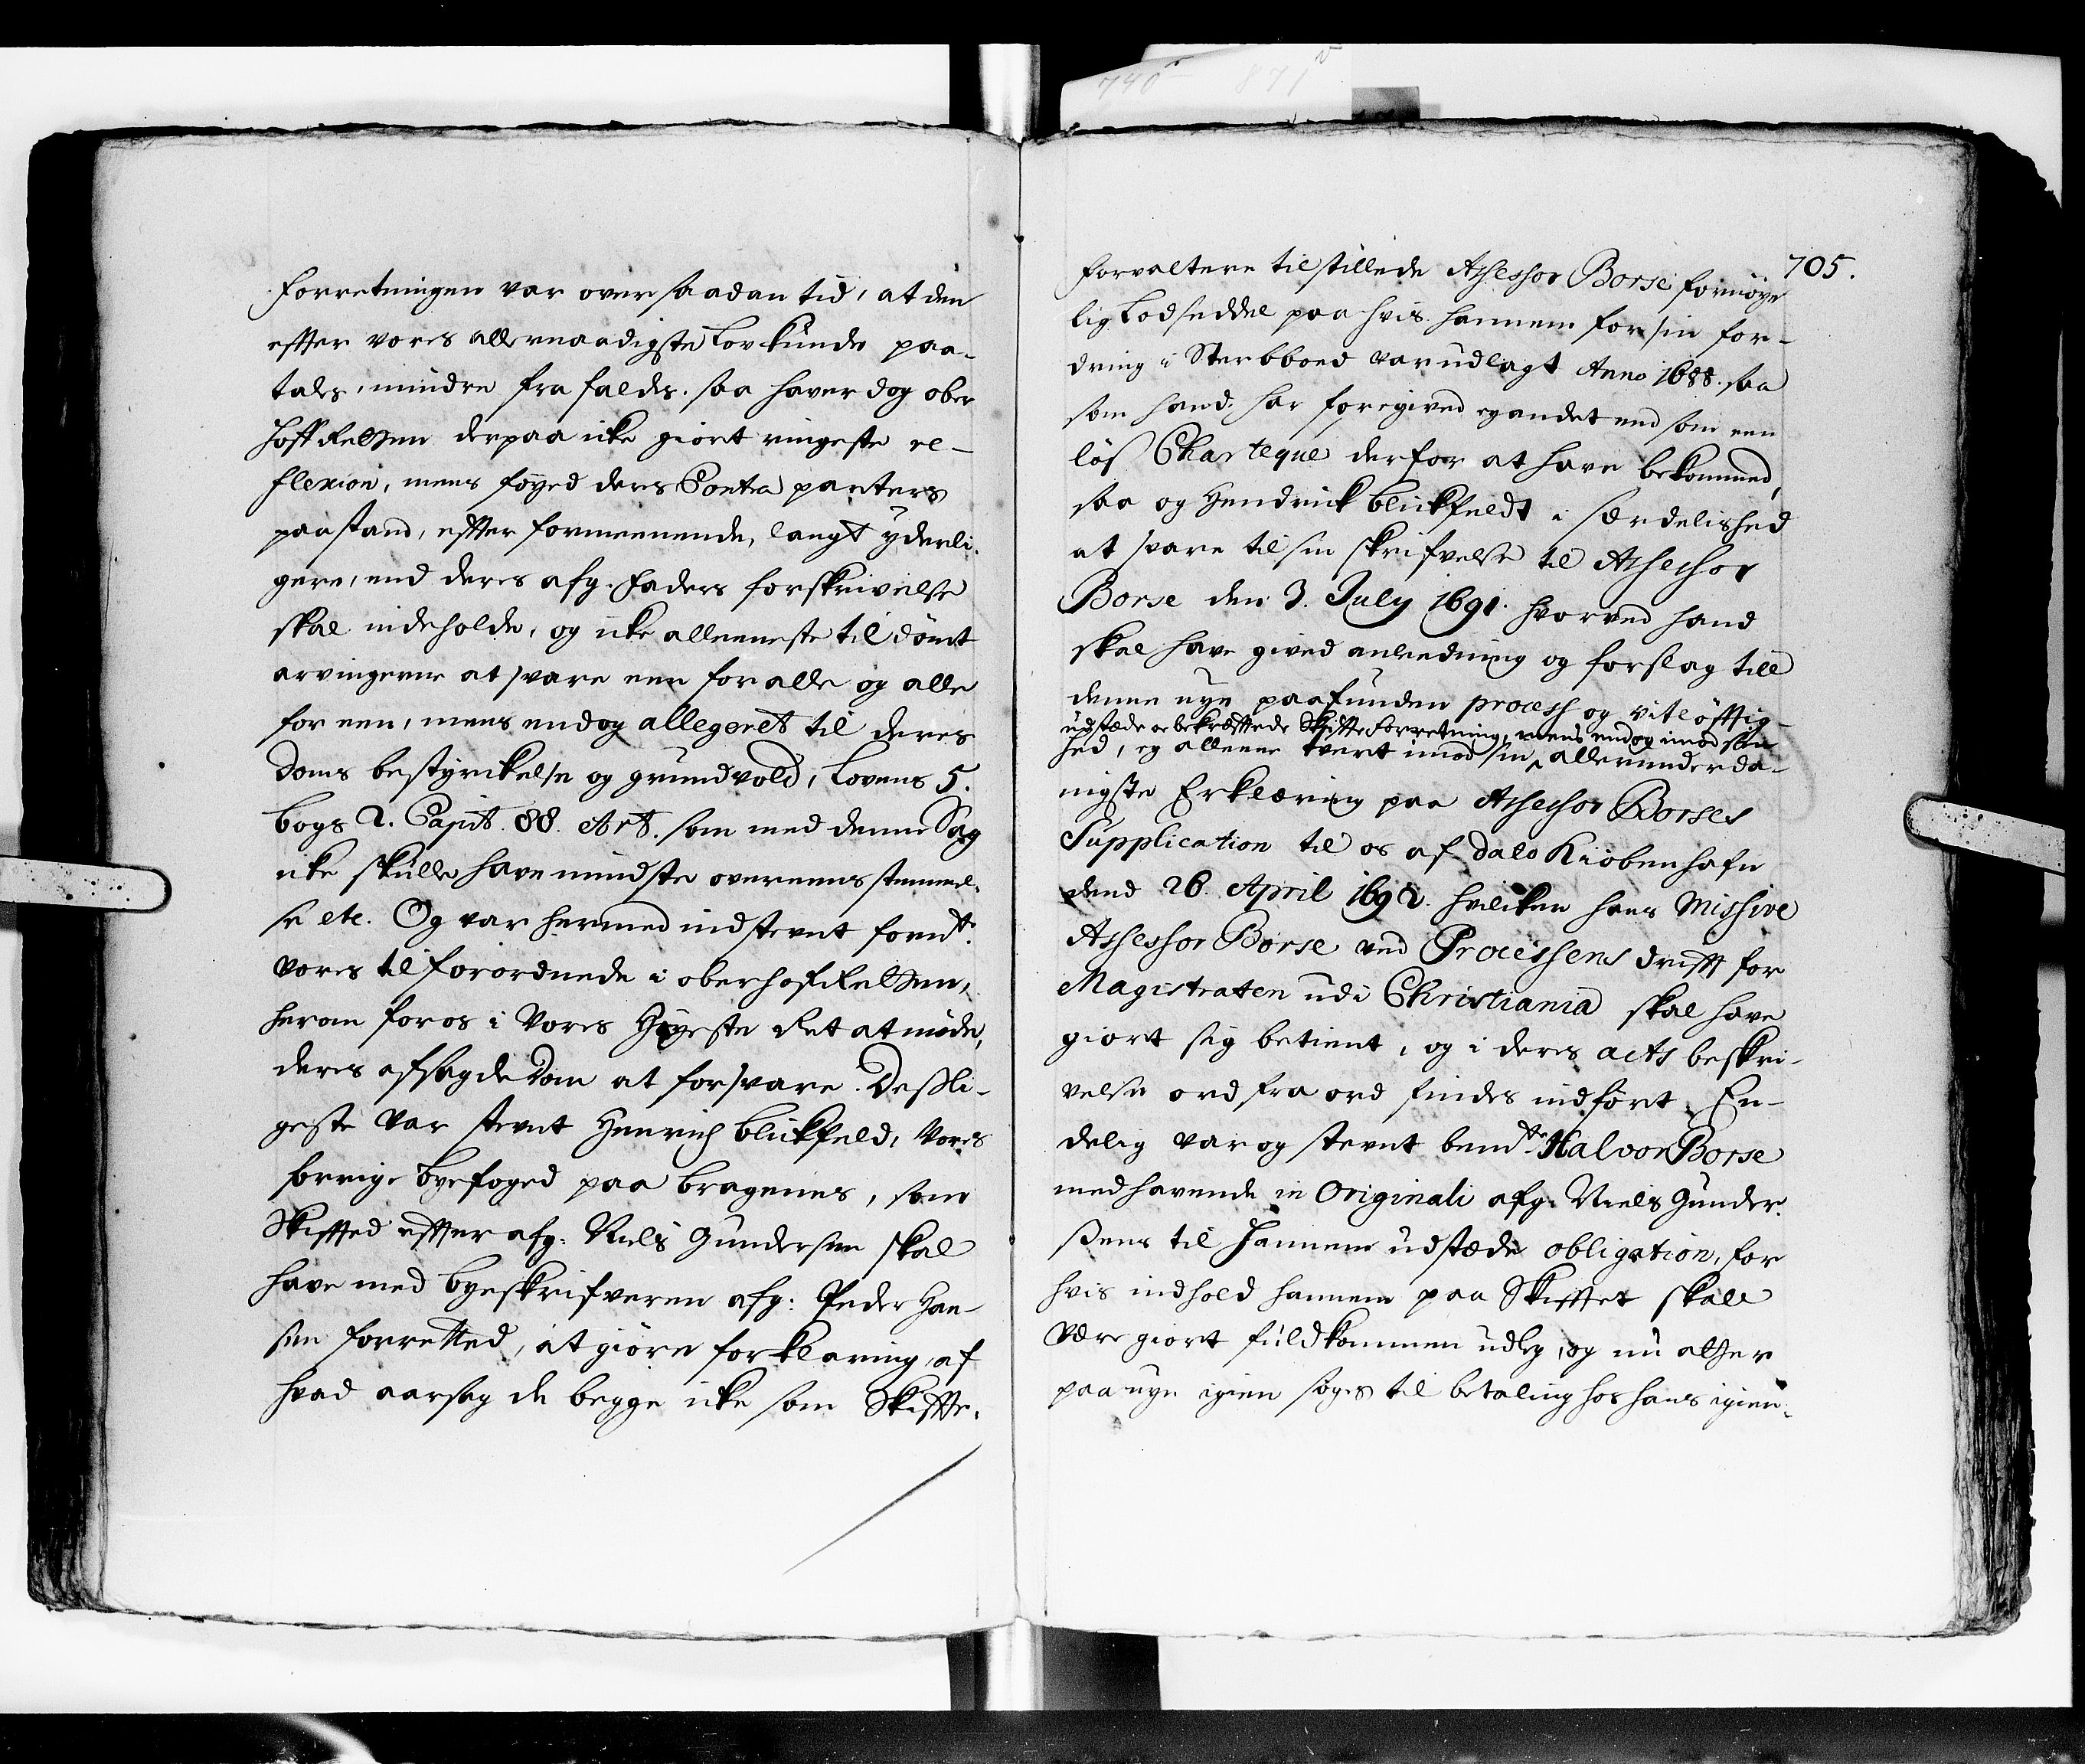 forretningen var over saadan tid, at den
effter vores allernaadigste Lov kunde paa-
tales, mindre fra faldes. saa haver dog ober
hoffRetten derpaa icke giort ringeste re-
flexion, mens føyed deres Contra parters
paastand, effter formeenende, langt yderli-
gere, end deres afg. Faders forskrivelse
skal indeholde, og icke alleeneste tildömt
arvingerne at svare een for alle og alle
for een, mens endog allegeret til deres
doms bestyrckelse og grundvold, Lovens 5.
bogs 2. Capit. 88. Art. som med denne Sag
icke skulle have mindste overeensstemmel-
se etc. Og var hermed indstevnt forndt.
vores tilforordnede i oberhofRetten,
herom for os i Vores Høyeste Ret at møde,
deres afsagde Dom at forsvare. Desli-
geste var stevnt Henrich Blickfeld, Vores
forrige byefoged paa Bragenes, som
Skifftet effter afg: Niels Gundersen skal
have med byeskrifveren afg: Peder Han-
sen forretted, at giöre forklaring, af
hvad aarsag de begge icke som Skiffte-
740 r
871 v
705.
forvaltere tilstillede Assessor Borse fornöye
lig Lodseddel paa hvis hannem for sin for-
dring i Sterbboed var udlagt Anno 1688. saa
som hand har foregived ey andet end som een
lös Charteque derfor at have bekommed,
saa og Hendrick Blickfeldt i særdelished
at svare til sin skrifvelse til Assessor
Borse den 3. July 1691. hvorved hand
skal have gived anledning og forslag till
denne nye paafunden process og vitlöfftig-
udstæde og bekræfftede Skiffteforretning, mens endog imod sin
hed, ey alleene tvert imod sin ^ allerunderda-
nigste Erklæring paa Assessor Borses
Supplication til os af dato Kiöbenhafn
dend 26. April 1692. hvilcken hans Missive
Assessor Borse ved Processens drifft for
Magistraten udi Christiania skal have
giort sig betient, og i deres acts beskri-
velse ord fra ord findes indfört. En-
delig var og stevnt bemte. Halvor Borse
medhavende in Originali afg. Niels Gunder-
sens til hannem udstæde obligation, for
hvis indhold hannem paa Skifftet skall
være giort fuldkommen udleg, og nu atter
paa nye igien söges til betaling hos hans igien-